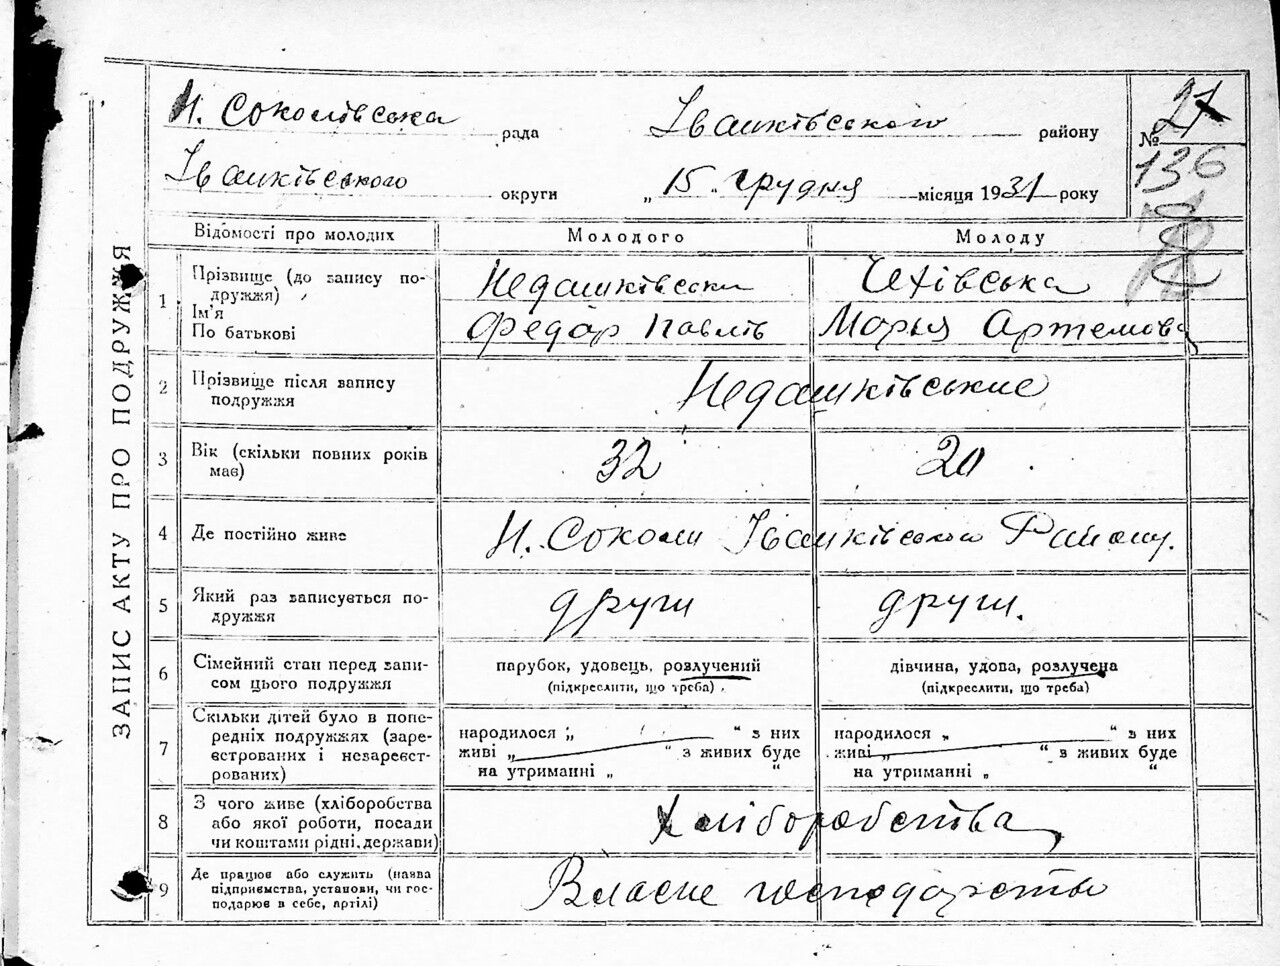 Н. Соколівська рада Іванківського району № 21
Іванківського округи „ 15 „ грудня місяця 1931 року
136
ЗАПИС АКТУ ПРО ПОДРУЖЖЯ
Відомості про молодих Молодого Молоду
1 Прізвище (до запису по- Недашківски Чехівська
дружжя)
Ім'я Федар Павлів Марья Артемова
По батькові
2 Прізвище після запису Недашківськие
подружжя
3 Вік (скільки повних років 32 20
має)
4 Де постійно живе Н. Соколи Іванківського Району.
5 Який раз записується по- други други.
дружжя
6 Сімейний стан перед запи- парубок, удовець, розлучений дівчина, удова, розлучена
сом цього подружжя (підкреслити, що треба) (підкреслити, що треба)
7 Скільки дітей було в попе-
редніх подружжях (заре- народилося „ “ з них народилося „ “ з них
єстрованих і незареєст- живі „ “ з живих буде живі „ “ з живих буде
рованих) на утриманні „ “ на утриманні „ “
8 З чого живе (хліборобства Хліборобства
або якої роботи, посади
чи коштами рідні, держави)
9 Де працює або служить (назва Власне господарство
підприємства, установи, чи гос-
подарює в себе, артілі)